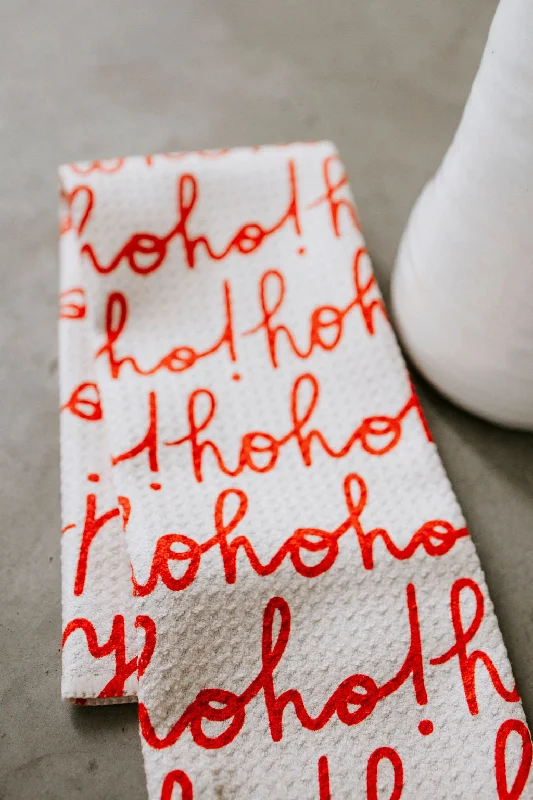 hoho! h
ho! hoh
! hoho
hohoho
hoho! h